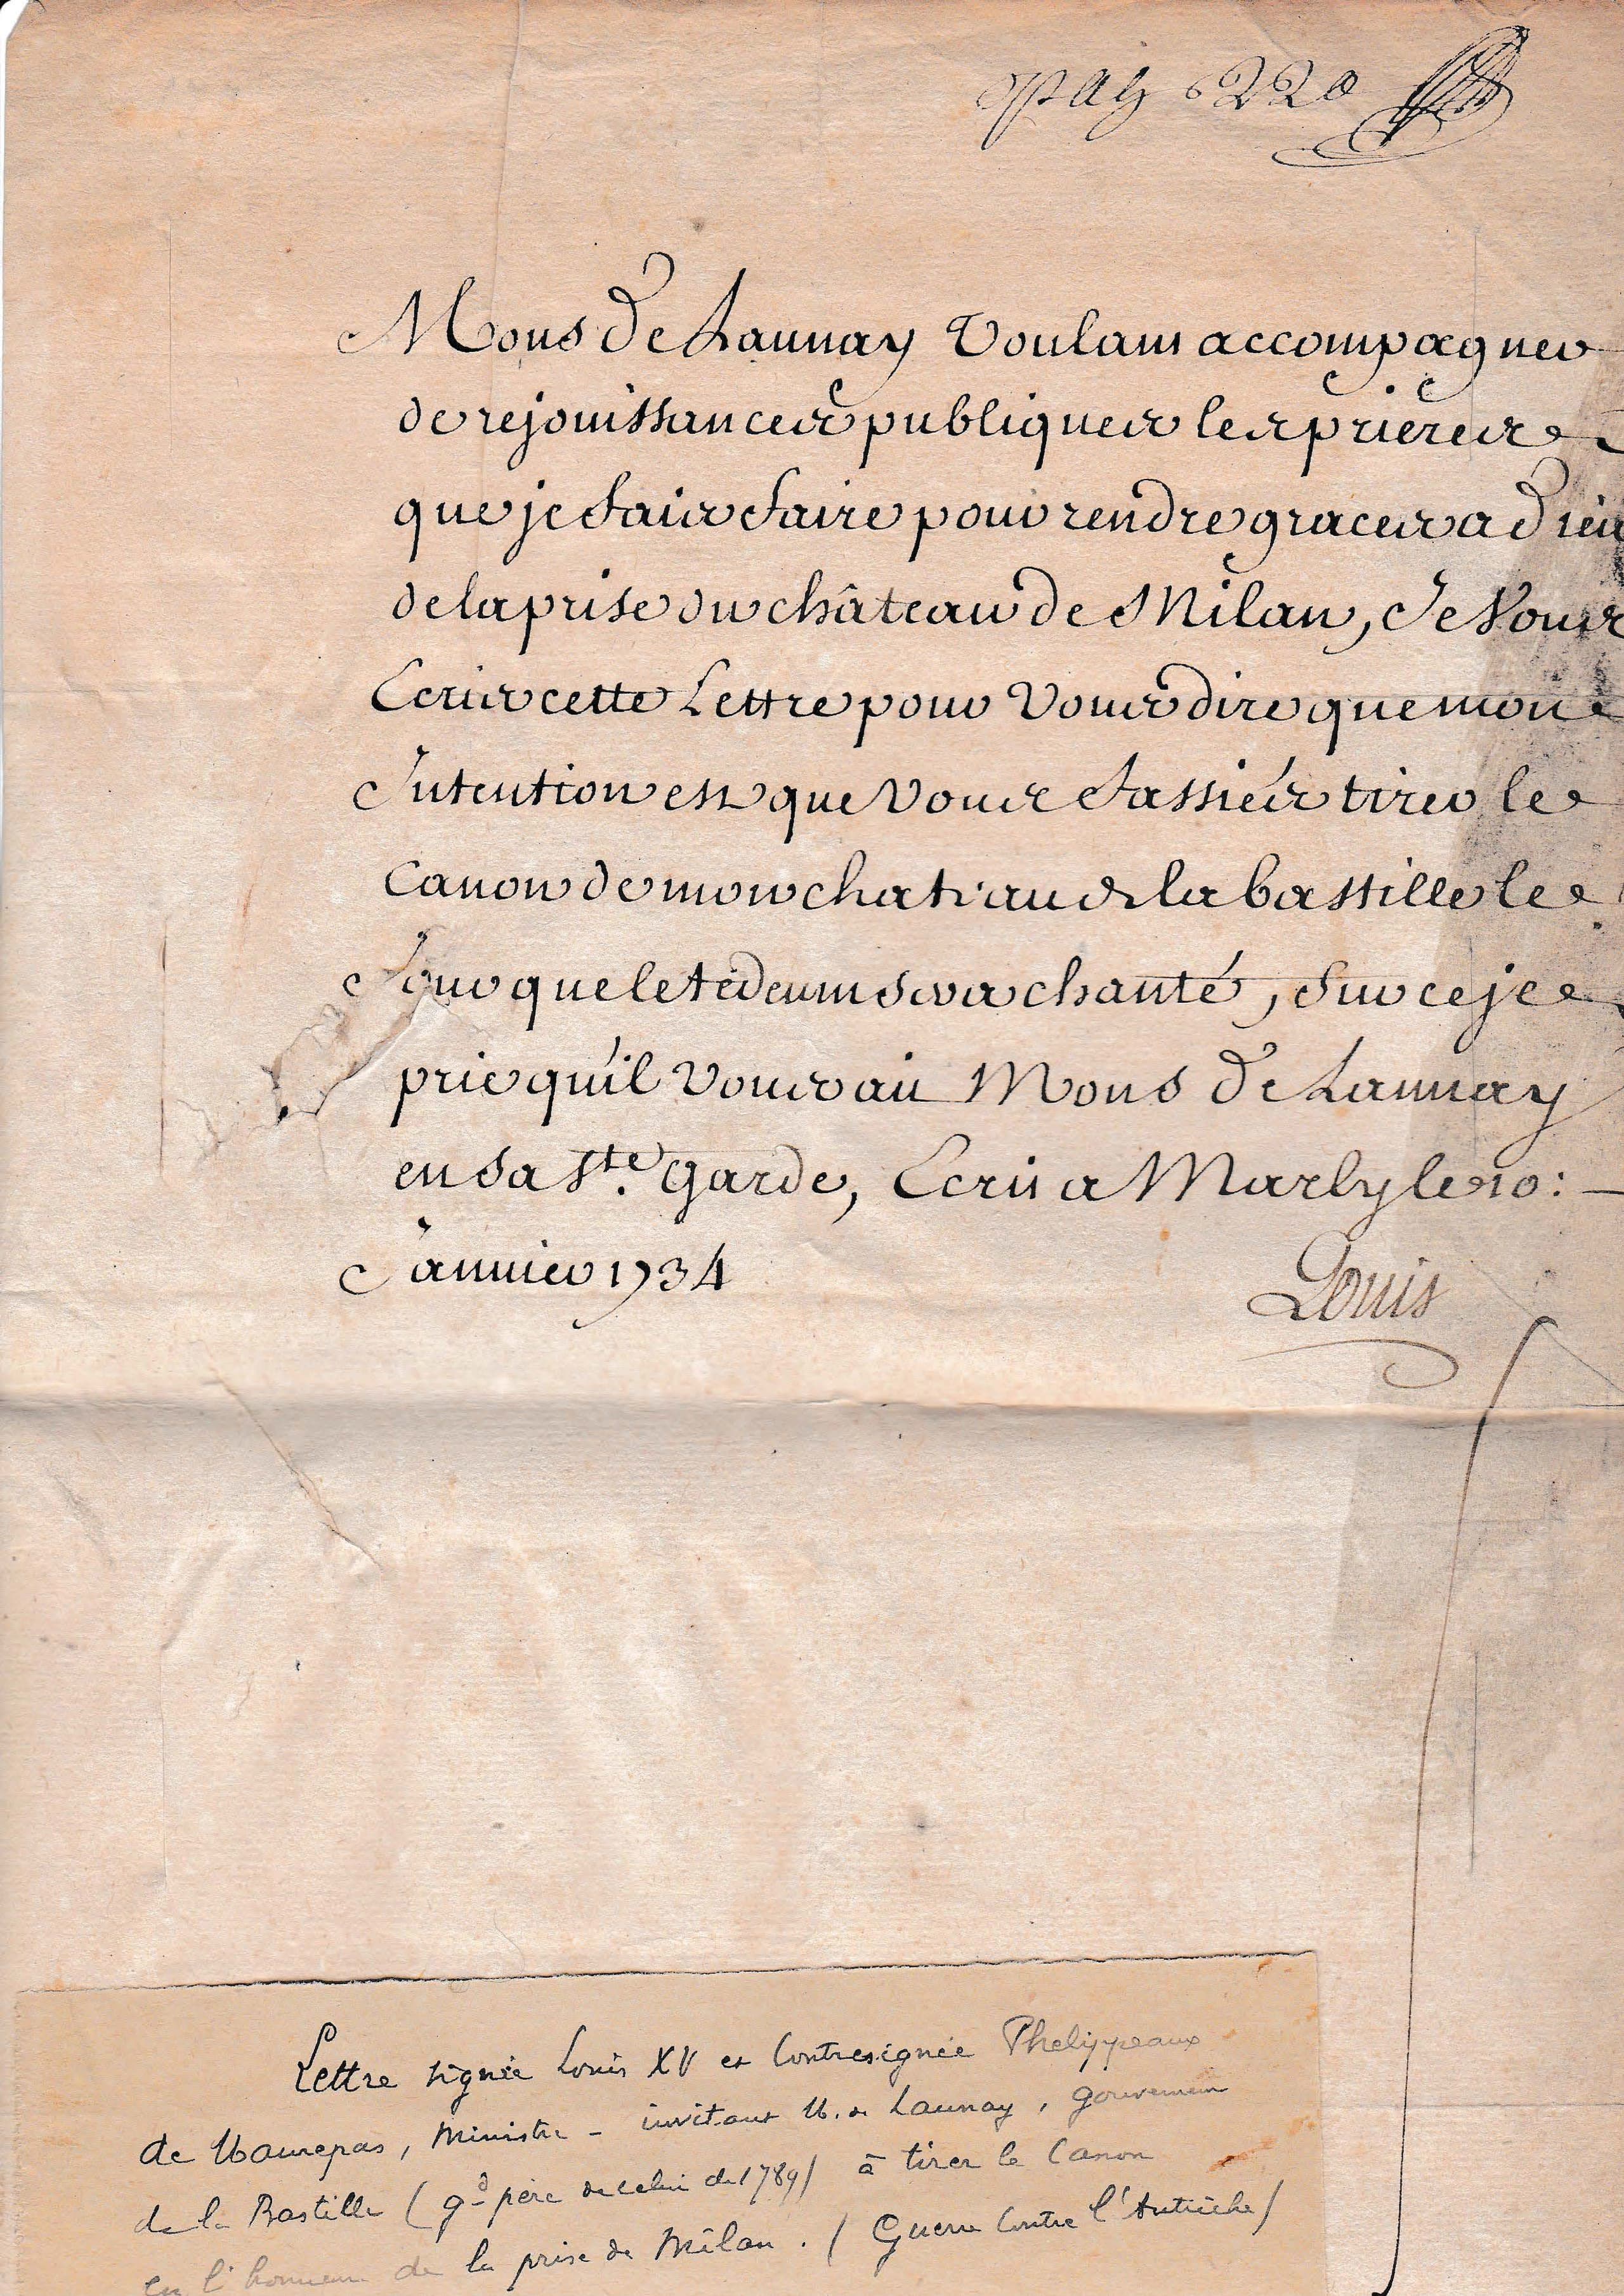 pag 220
Mons De Launay Voulant accompagner
de rejouissances publiques les prieres
que je fais faire pour rendre graces a Dieu
de la prise du château de Milan, Je Vous
Ecris cette Lettre pour Vous dire que mon
Intention est que Vous fassiés tirer le
Canon de mon chateau de la bastille le
Jour que le te deum sera chanté, Sur ce je
prie qu'il Vous ait Mons De Launay
en sa Ste. Garde, Ecrit a Marly le 10:
Janvier 1734
Louis
Lettre signée Louis XV et Contresignée Phelyppeaux
de Maurepas, Ministre - invitant M. de Launay, gouverneur
de la Bastille (gd père de celui de 1789) à tirer le Canon
en l'honneur de la prise de Milan. (Guerre Contre l'Autriche)